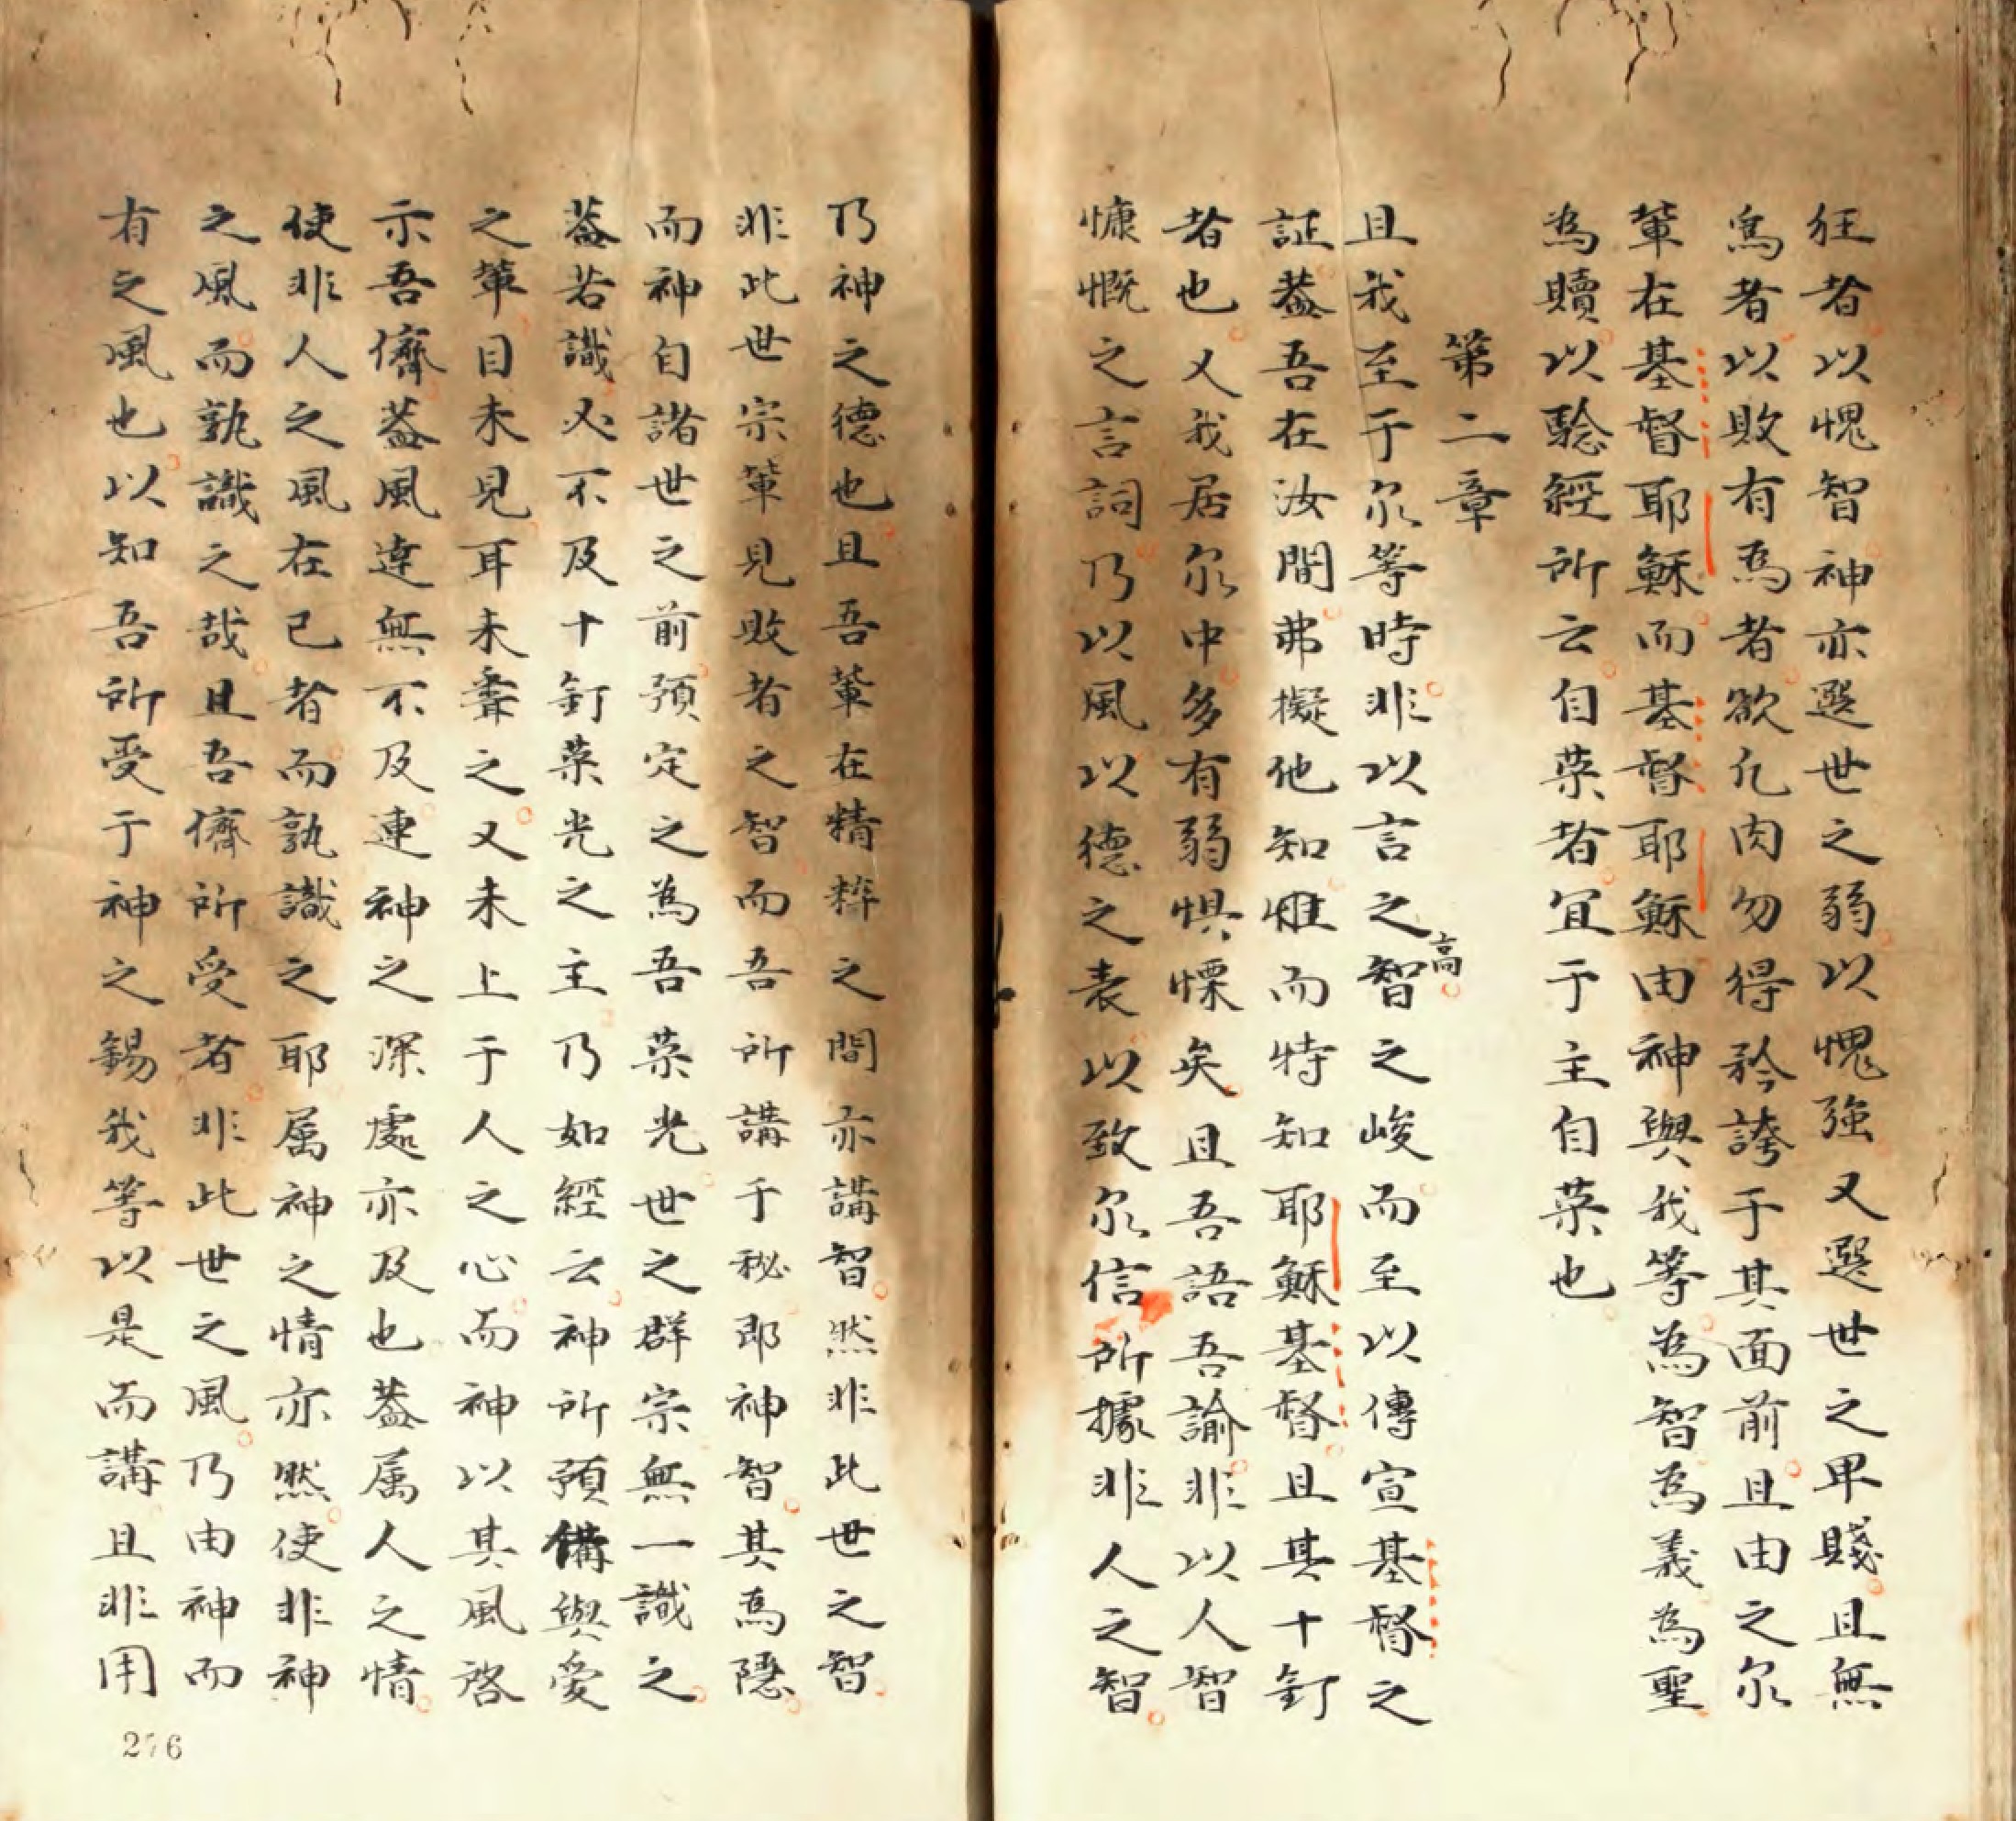 狂者以愧智神亦選世之弱以愧強又選世之卑賤且無
為者以敗有為者欲凢肉勿得矜誇于其面前且由之尔
輩在基督耶穌而基督耶穌由神與我等為智為義為聖
為贖以騐經所云自荣者宜于主自荣也
第二章
且我至于尔等時非以言之高智之峻而至以傳宣基督之
証蓋吾在汝間弗擬他知惟而特知耶穌基督且其十釘
者也又我居尔中多有弱惧慄矣且吾語吾諭非以人智
慷慨之言詞乃以風以德之表以致尔信所據非人之智
乃神之德也且吾輩在精粹之間亦講智然非此世之智
非此世宗輩見敗者之智而吾所講于秘即神智其為隱
而神自諸世之前預定之為吾荣光世之群宗無一識之
蓋若識必不及十釘荣光之主乃如經云神所預備與愛
之輩目未見耳未聋之又未上于人之心而神以其風啓
示吾儕蓋風達無不及連神之深處亦及也蓋属人之情
使非人之風在已者而孰識之耶属神之情亦然使非神
之風而孰識之哉且吾儕所受者非此世之風乃由神而
有之風也以知吾所受于神之錫我等以是而講且非用
276